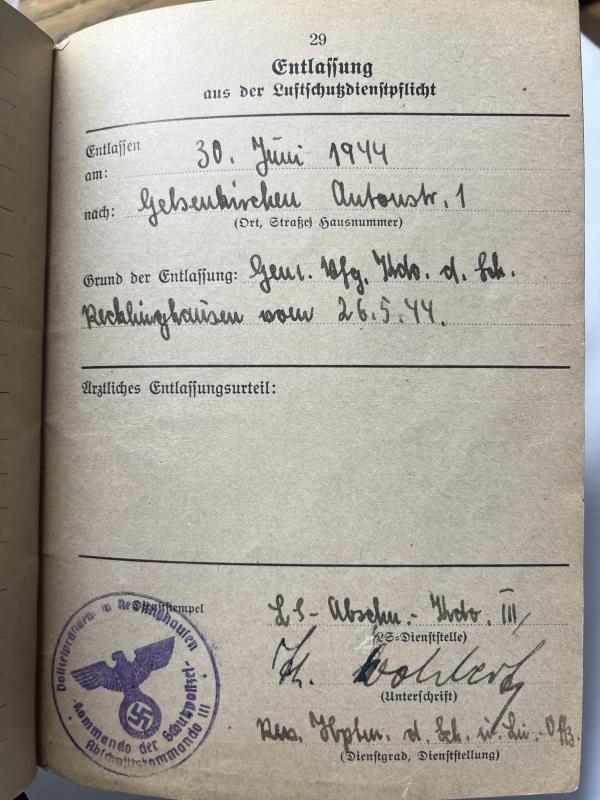 29
Entlassung
aus der Luftschutzdienstpflicht
Entlassen
am: 30. Juni 1944
nach: Gelsenkirchen Antonstr. 1
(Ort, Straße, Hausnummer)
Grund der Entlassung: Gem. Vfg. Kdo. d. Sch.
Recklinghausen vom 26.5.44.
Ärztliches Entlassungsurteil:
Dienststempel
LS-Abschn.-Kdo. III
(LS-Dienststelle)
(Unterschrift)
Rev. Hptm. d. Sch. u.
(Dienstgrad, Dienststellung)
Recklinghausen
Kommando der Schutzpolizei
Abschnittskommando III